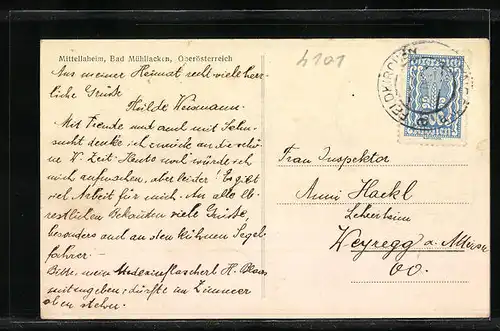 Mittellaheim, Bad Mühllacken, Oberösterreich
4101
FELDKIRCHEN
Aus meiner Heimat recht viele herz-
liche Grüße
Hulde
Mit Freude und auch mit Sehn-
sucht denke ich zurück an die schö-
ne W. Zeit. Heute noch würde ich
mich aufmachen, aber leider! Es gibt
viel Arbeit für mich. An alle üb-
restlichen Bekannten viele Grüße,
besonders auch an den kühnen Segel-
fahrer. –
Bitte, mein H.
mitzugeben; dürfte im Zimmer
oben stehn.
Frau Inspektor
Anni Hackl
Lehrerheim
Weyregg a. Attersee
OÖ.